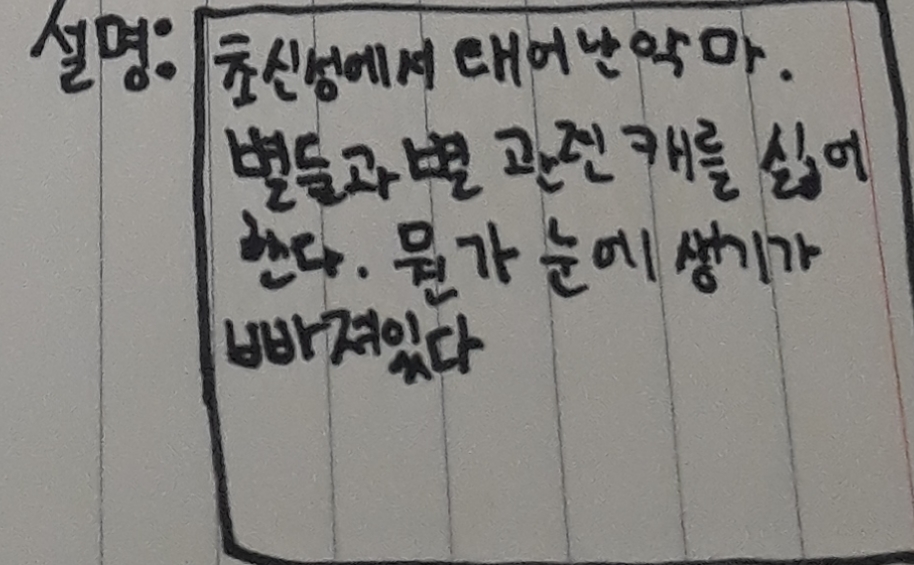 설명: 초신성에서 태어난 악마.
별들과 별 관련 캐를 싫어
한다. 뭔가 눈에 생기가
빠져있다